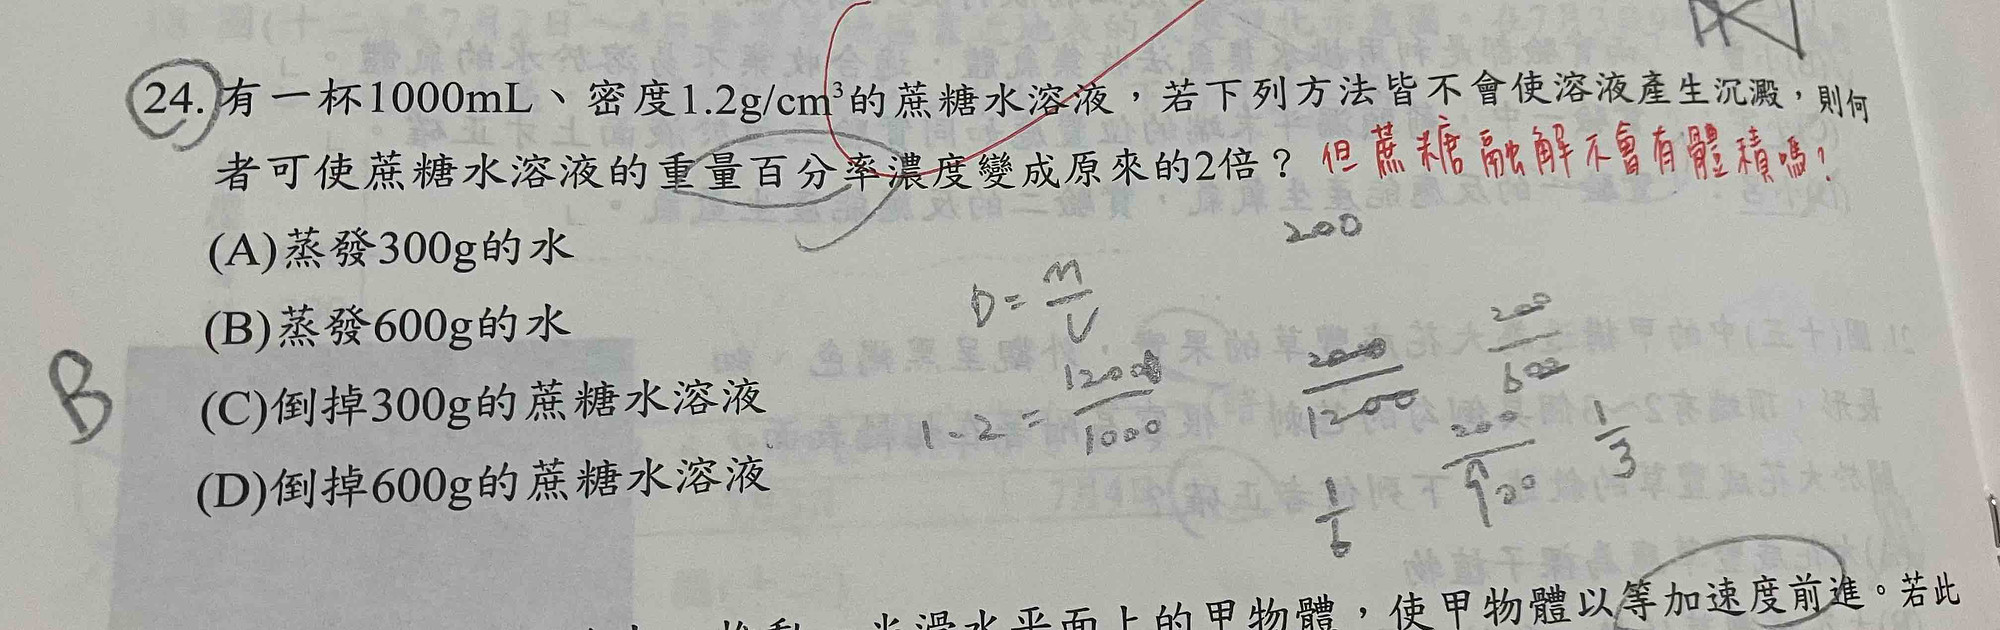 24. 有一杯1000mL、密度1.2g/cm³的蔗糖水溶液，若下列方法皆不會使溶液產生沉澱，則何
者可使蔗糖水溶液的重量百分率濃度變成原來的2倍？ 但蔗糖融解不會有體積嗎？
200
(A)蒸發300g的水
(B)蒸發600g的水
(C)倒掉300g的蔗糖水溶液
(D)倒掉600g的蔗糖水溶液
B
D=m/V
1.2=1200/1000
200/1200
200/600
200/900
1/3
1/6
光滑水平面上的甲物體，使甲物體以等加速度前進。若此